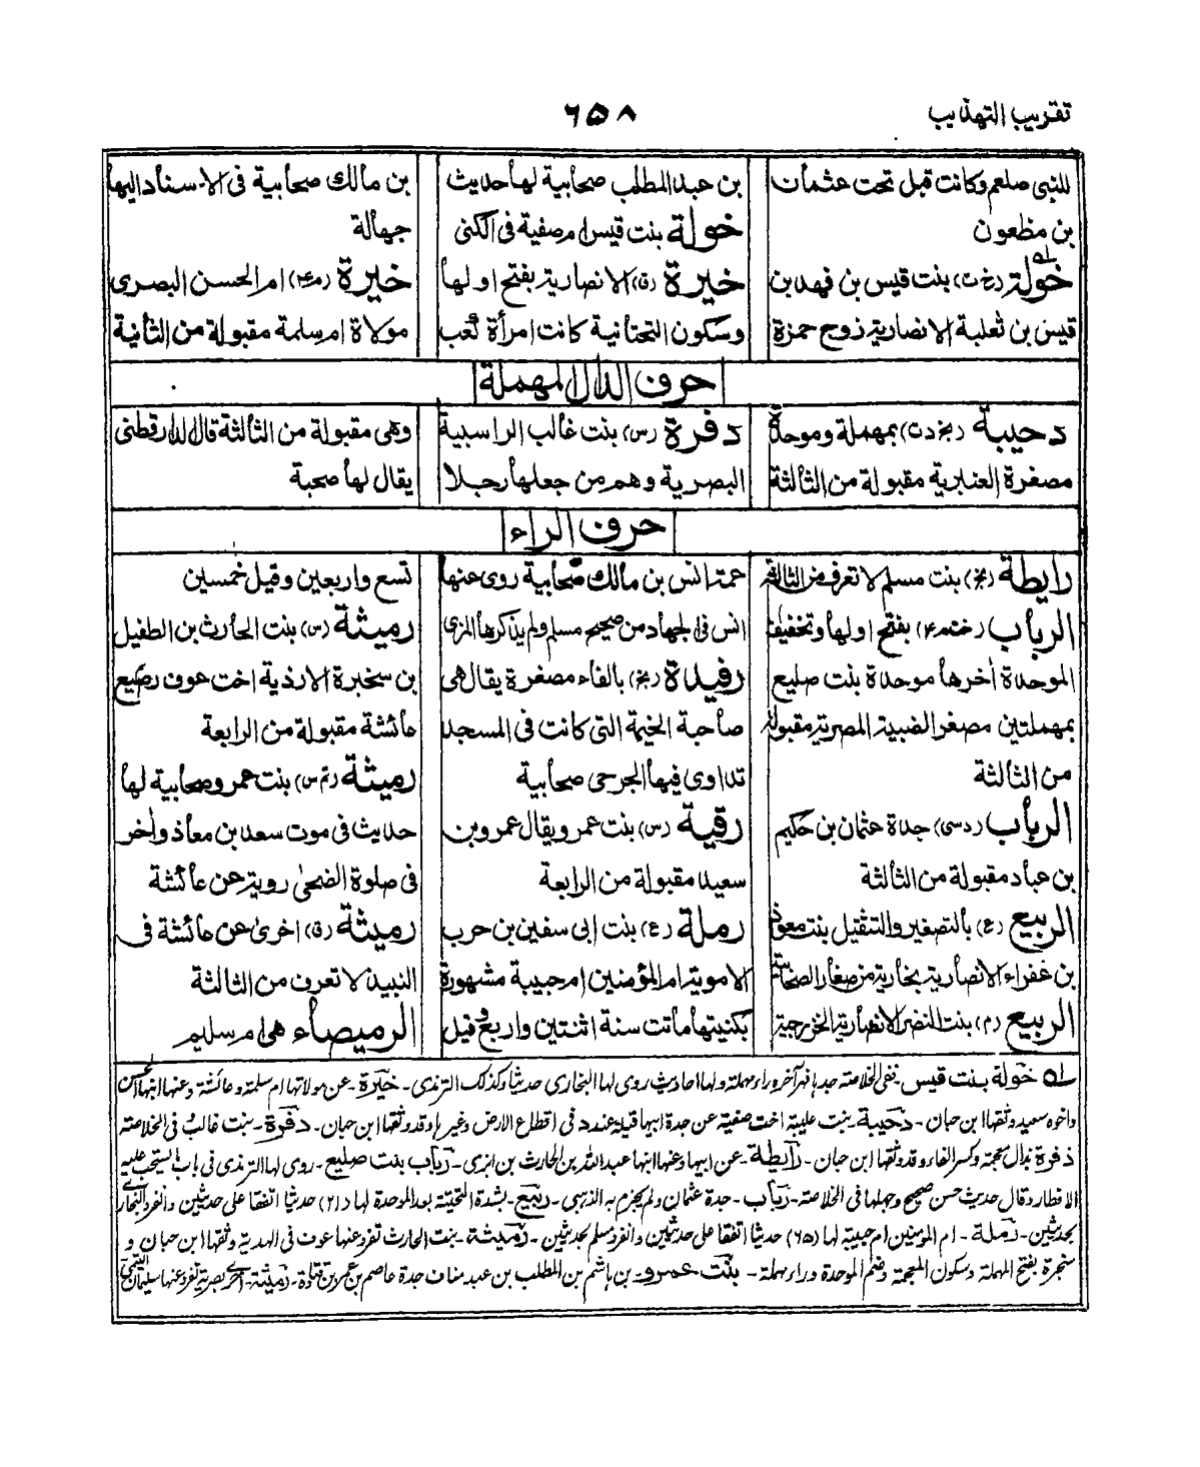 تقريب التهذيب
٦٥٨
للنبي صلعم وكانت قبل تحت عثمان
بن مظعون
خولة (خ ت) بنت قيس بن فهد بن
قيس بن ثعلبة الانصارية زوج حمزة
بن عبد المطلب صحابية لها حديث
خولة بنت قيس ام صفية فى الكنى
خيرة (ق) الانصارية بفتح اولها
وسكون التحتانية كانت امرأة كعب
بن مالك صحابية فى الاسناد اليها
جهالة
خيرة (م ۴) ام الحسن البصرى
مولاة ام سلمة مقبولة من الثانية
حرف الدال المهملة
دحيبة (بخ د ت) بمهملة وموحدة
مصغرة العنبرية مقبولة من الثالثة
دفرة (س) بنت غالب الراسبية
البصرية وهم من جعلها رجلا
وهى مقبولة من الثالثة قال الدارقطنى
يقال لها صحبة
حرف الراء
رايطة (بخ) بنت مسلم لا تعرف من الثالثة
الرباب (خت ۴) بفتح اولها وتخفيف
الموحدة اخرها موحدة بنت صليع
بمهملتين مصغر الضبية المصرية مقبولة
من الثالثة
الرباب (د سى) جدة عثمان بن حكيم
بن عباد مقبولة من الثالثة
الربيع (ع) بالتصغير والتثقيل بنت معوذ
بن عفراء الانصارية بخارية من صغار الصحابة
الربيع (م) بنت النضر الانصارية الخزرجية
عمة انس بن مالك صحابية روى عنها
انس فى الجهاد من صحيح مسلم ولم يذكرها المزى
رفيدة (بخ) بالفاء مصغرة يقال هى
صاحبة الخيمة التى كانت فى المسجد
تداوى فيها الجرحى صحابية
رقية (س) بنت عمر ويقال عمرو بن
سعيد مقبولة من الرابعة
رملة (ع) بنت ابى سفين بن حرب
الاموية ام المؤمنين ام حبيبة مشهورة
بكنيتها ماتت سنة اثنتين واربع وقيل
تسع واربعين وقيل خمسين
رميثة (س) بنت الحارث بن الطفيل
بن سخبرة الازدية اخت عوف رضيع
عائشة مقبولة من الرابعة
رميثة (تم س) بنت عمرو صحابية لها
حديث فى موت سعد بن معاذ واخر
فى صلوة الضحى روته عن عائشة
رميثة (ق) اخرى عن عائشة فى
النبيذ لا تعرف من الثالثة
الرميصاء هى ام سليم
له خولة بنت قيس - ففى الخلاصة جد با فهر آخره راء مهملة ولها احاديث روى لها البخارى حديثا وكذلك الترمذى - خيرة - عن مولاتها ام سلمة وعائشة وعنها ابنها الحسن
واخوه سعيد وثقها ابن حبان - دحيبة - بنت عليبة اخت صفية عن جدة ابيها قيلة عند د فى اقطاع الارض وغيرها وقد وثقها ابن حبان - دفرة - بنت غالب فى الخلاصة
ذفرة بذال معجمة وكسر الفاء وقد وثقها ابن حبان - رايطة - عن ابيها وعنها ابنها عبد الله بن الحارث بن ابزى - رباب بنت صليع - روى لها الترمذى فى باب ما يستحب عليه
الافطار وقال حديث حسن صحيح وجهلها فى الخلاصة - رباب - جدة عثمان ولم يجزم به الذهبى - ربيع - بشدة التحتية بعد الموحدة لها (٢١) حديثا اتفقا على حديثين وانفرد البخارى
بحديثين - رملة - ام المؤمنين ام حبيبة لها (٦٥) حديثا اتفقا على حديثين وانفرد مسلم بحديثين - رميثة - بنت الحارث تفرد عنها عوف فى الهدية وثقها ابن حبان و
سخبرة بفتح المهملة وسكون المعجمة وضم الموحدة وراء مهملة - بنت عمرو - بن هاشم بن المطلب بن عبد مناف جدة عاصم بن عمر بن قتادة - رميثة - اخرى بصرية تفرد عنها سليمان التيمى